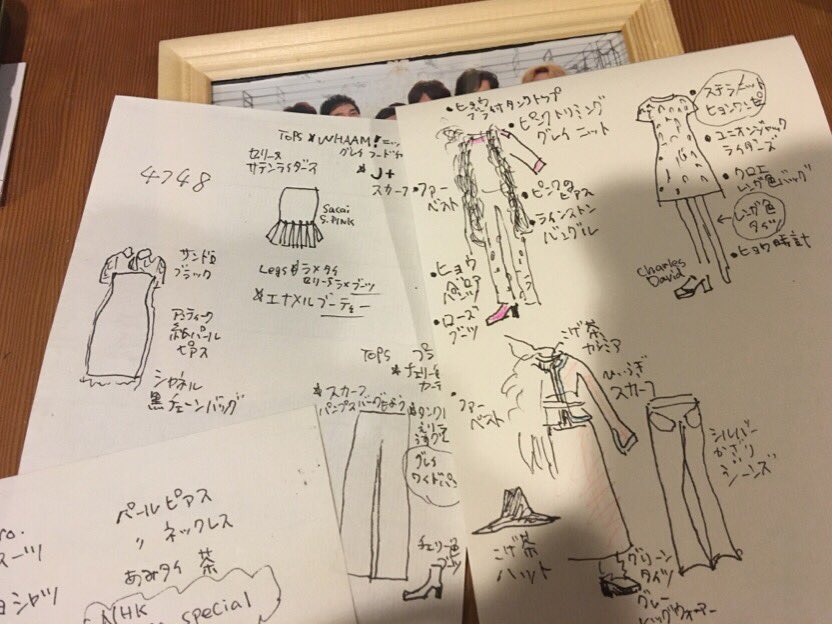 TOPS * WHAAM!ニッ
グレイ フードイ
セリース
サテンライダース
* J+
スカーフ
4748
Sacai
S.PINK
Legs * ラメタイ
セリーヌラメブーツ
* エナメルブーティー
サンドロ
ブラック
アンティーク
紙パール
ピアス
シャネル
黒チェーンバッグ
TOPS
プラ
* チェリー色
カーデ
* スカーフ
パンプス
グレイ
ワイドパン
チェリー色
ブーツ
パールピアス
〃 ネックレス
あみタイ 茶
NHK
special
ro.
スーツ
シャツ
•ヒョウ
ブラ付タンクトップ
•ピンクトリミング
グレイ ニット
•ファー
ベスト
•ピンクの
ピアス
•ラインストン
バングル
•ヒョウ
ベロア
パンツ
•ローズ
ブーツ
•ステラマット
ヒョウワンピ
•ユニオンジャック
ライダーズ
•クロエ
レンガ色バッグ
←レンガ色
タイツ
•ヒョウ時計
Charles
David
こげ茶
カシミア
ひつぎ
スカーフ
•ファー
ベスト
シルバー
かざり
ジーンズ
こげ茶
ハット
グリーン
タイツ
グレー